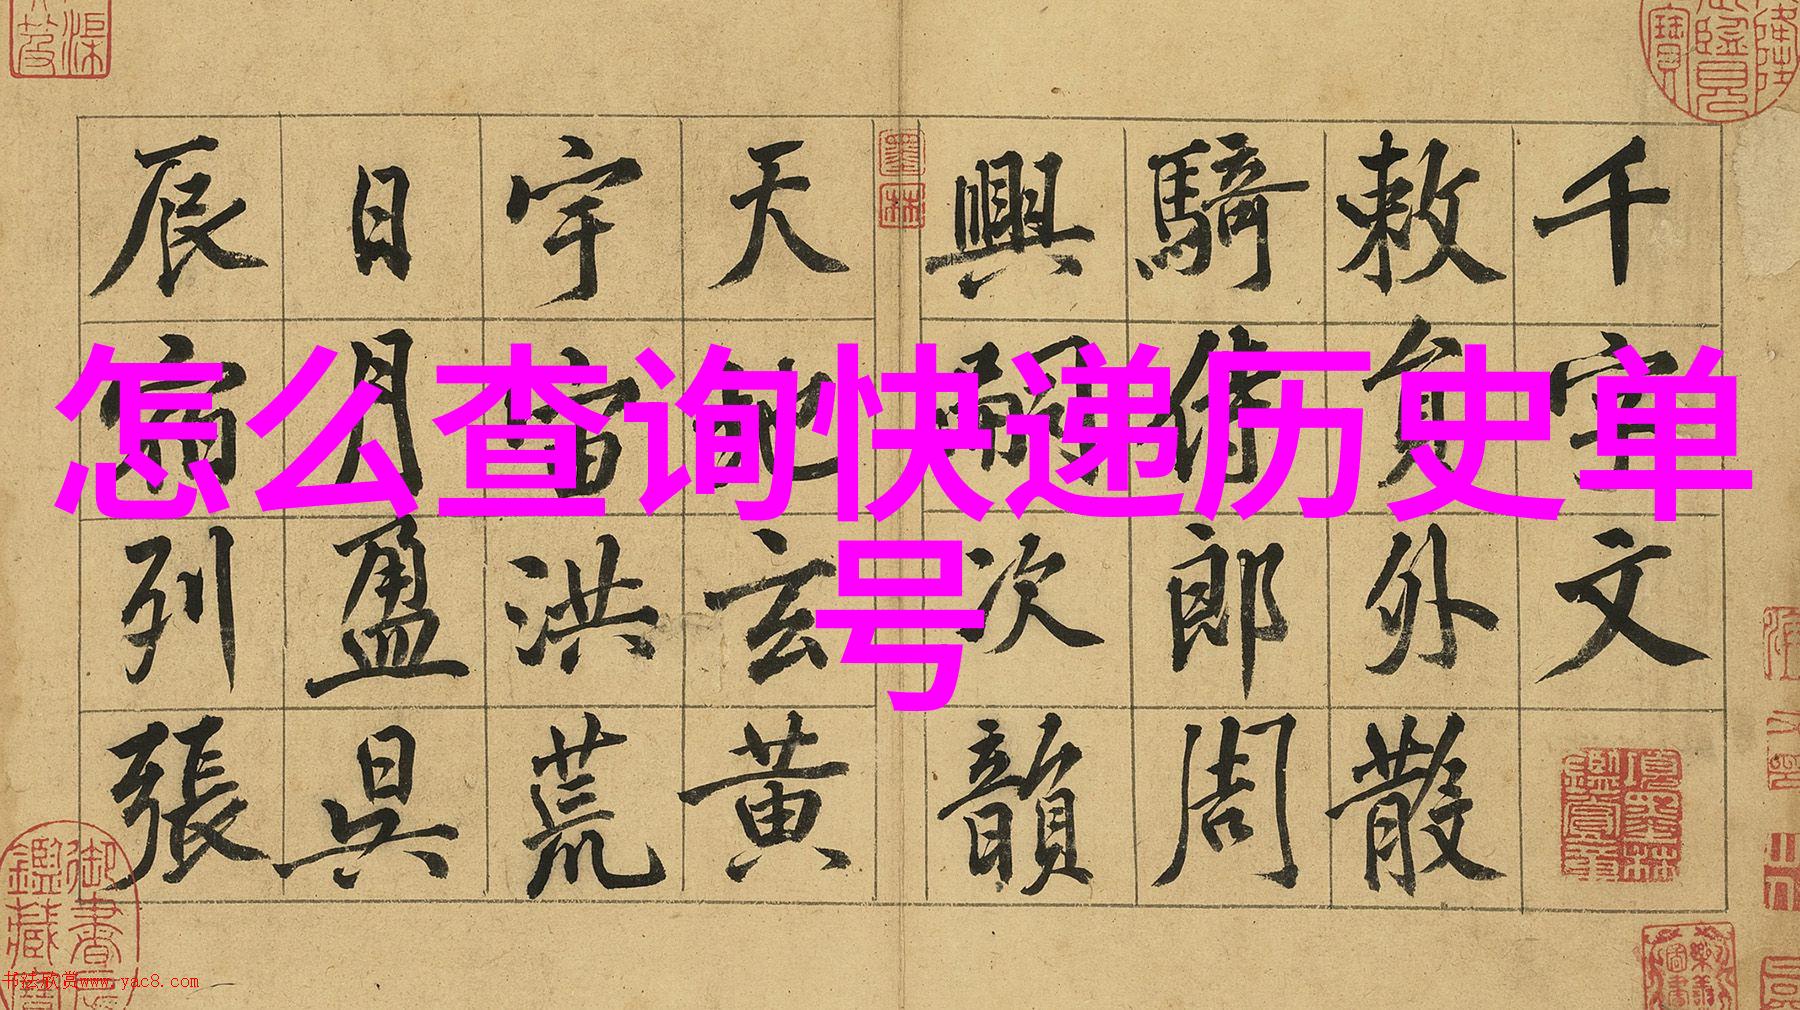 怎么查询快递历史单号
千字文
敕員外散
騎侍郎周
興嗣次韻
天地玄黄
宇宙洪荒
日月盈昃
辰宿列張
墨林
书法欣赏www.yac8.com